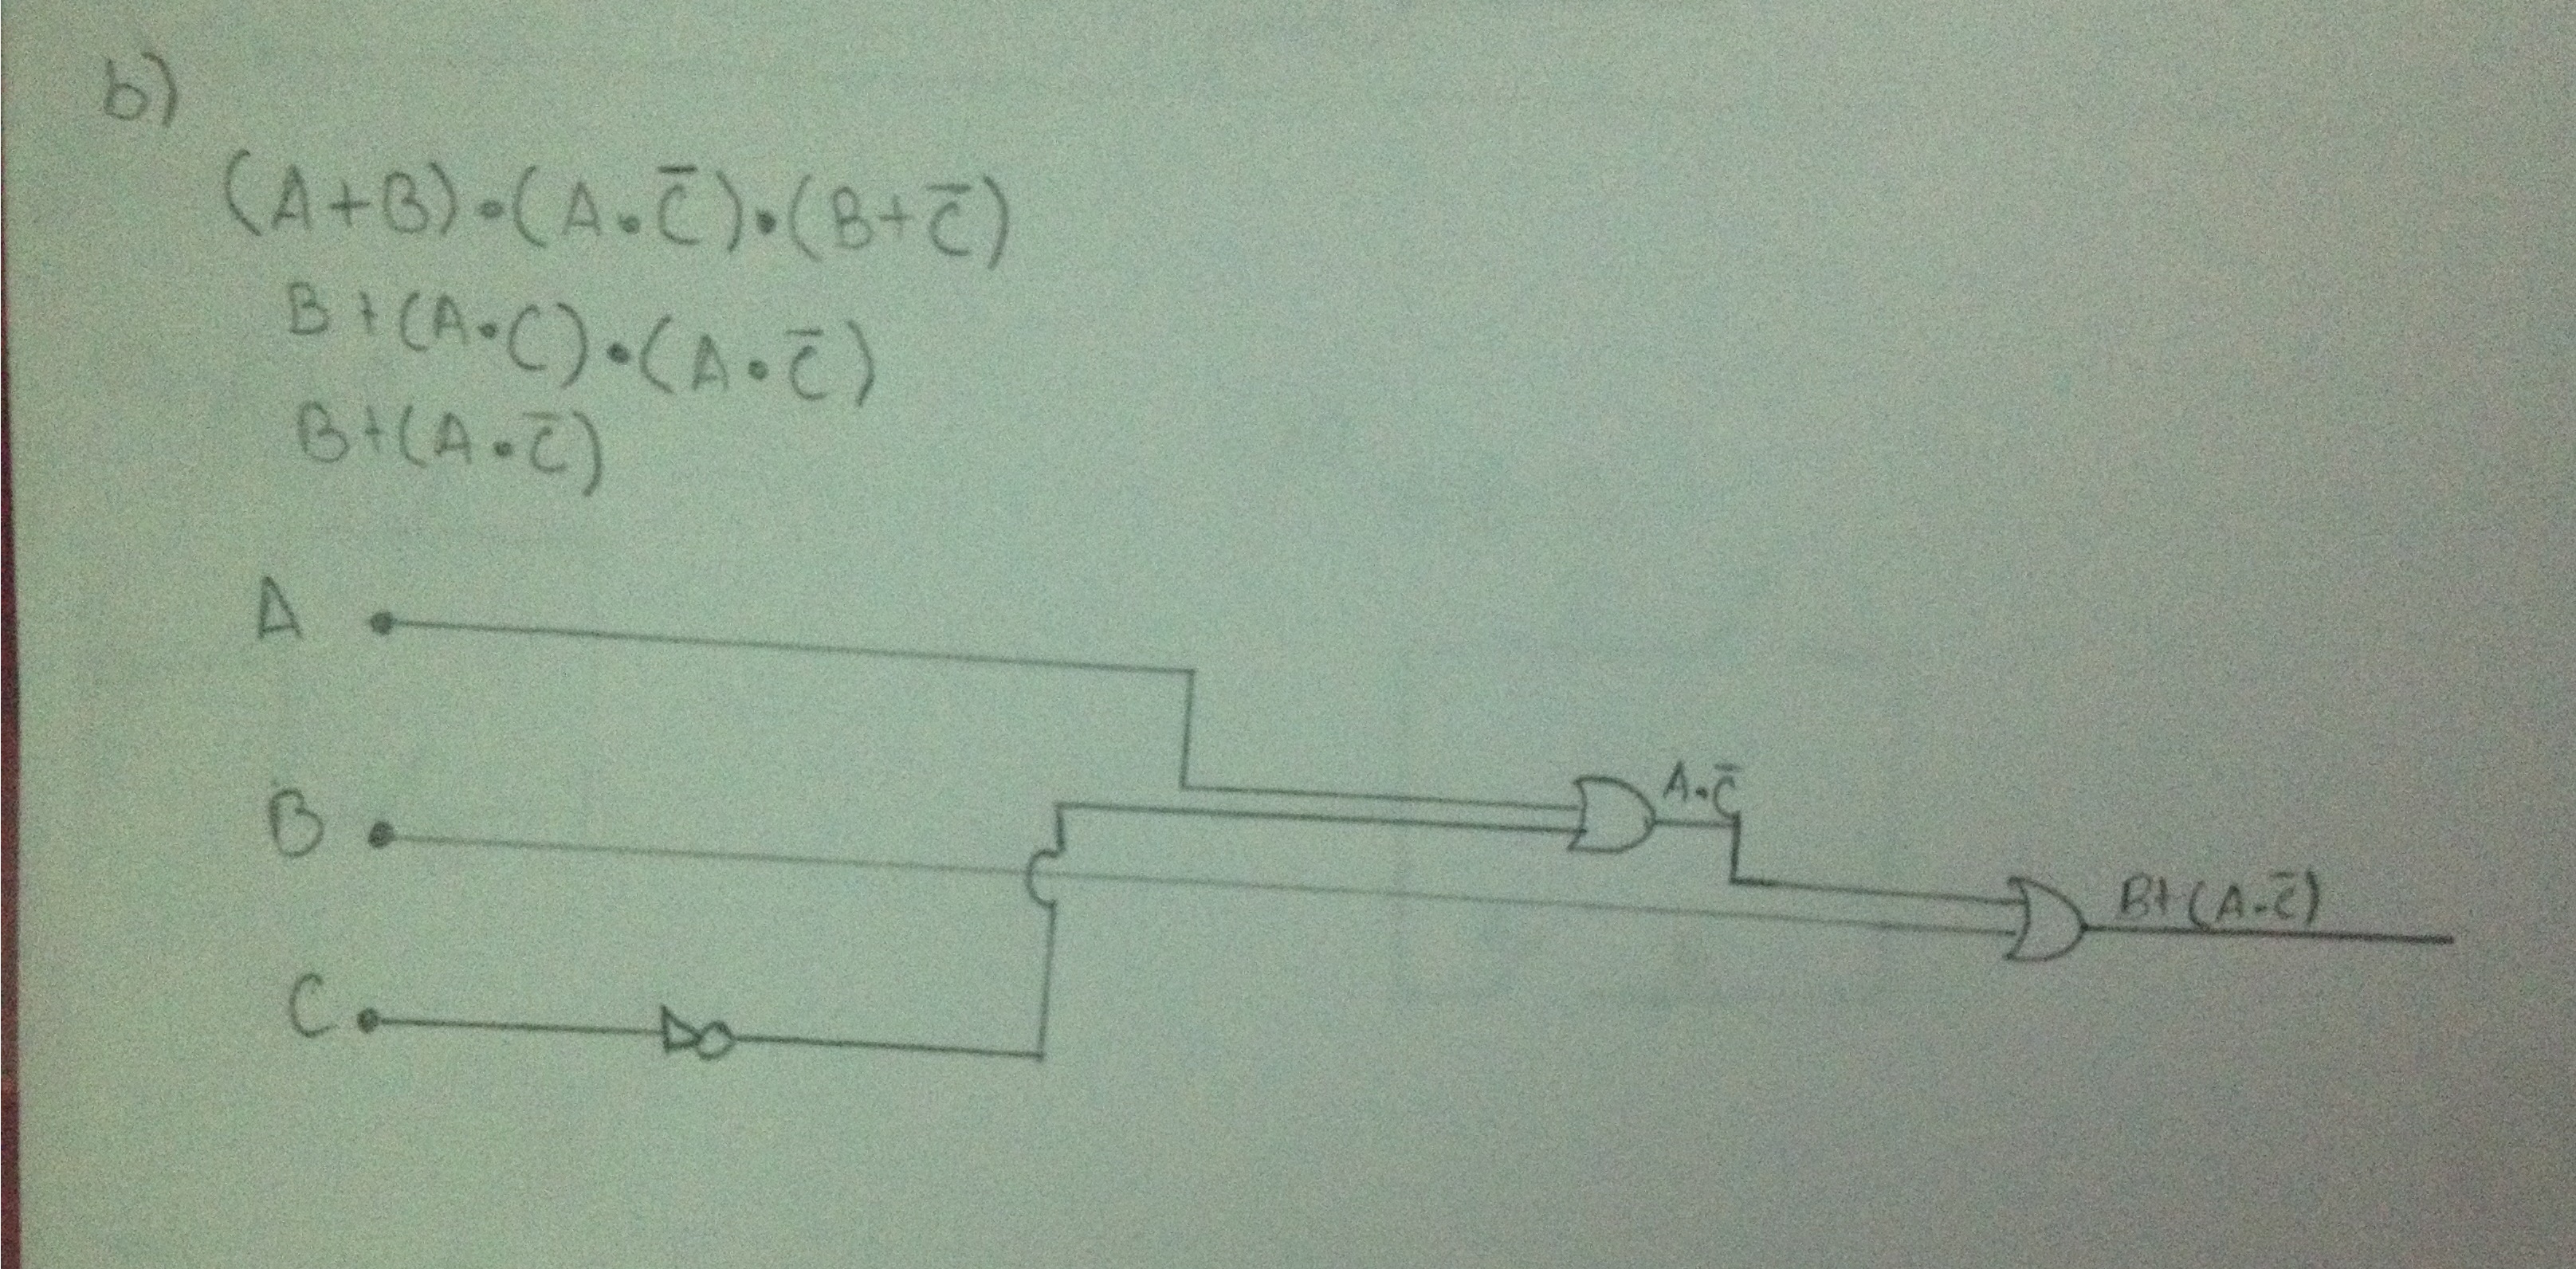 b)
(A+B)•(A•C̅)•(B+C̅)
B+(A•C)•(A•C̅)
B+(A•C̅)
A
A•C̅
B
B+(A•C̅)
C